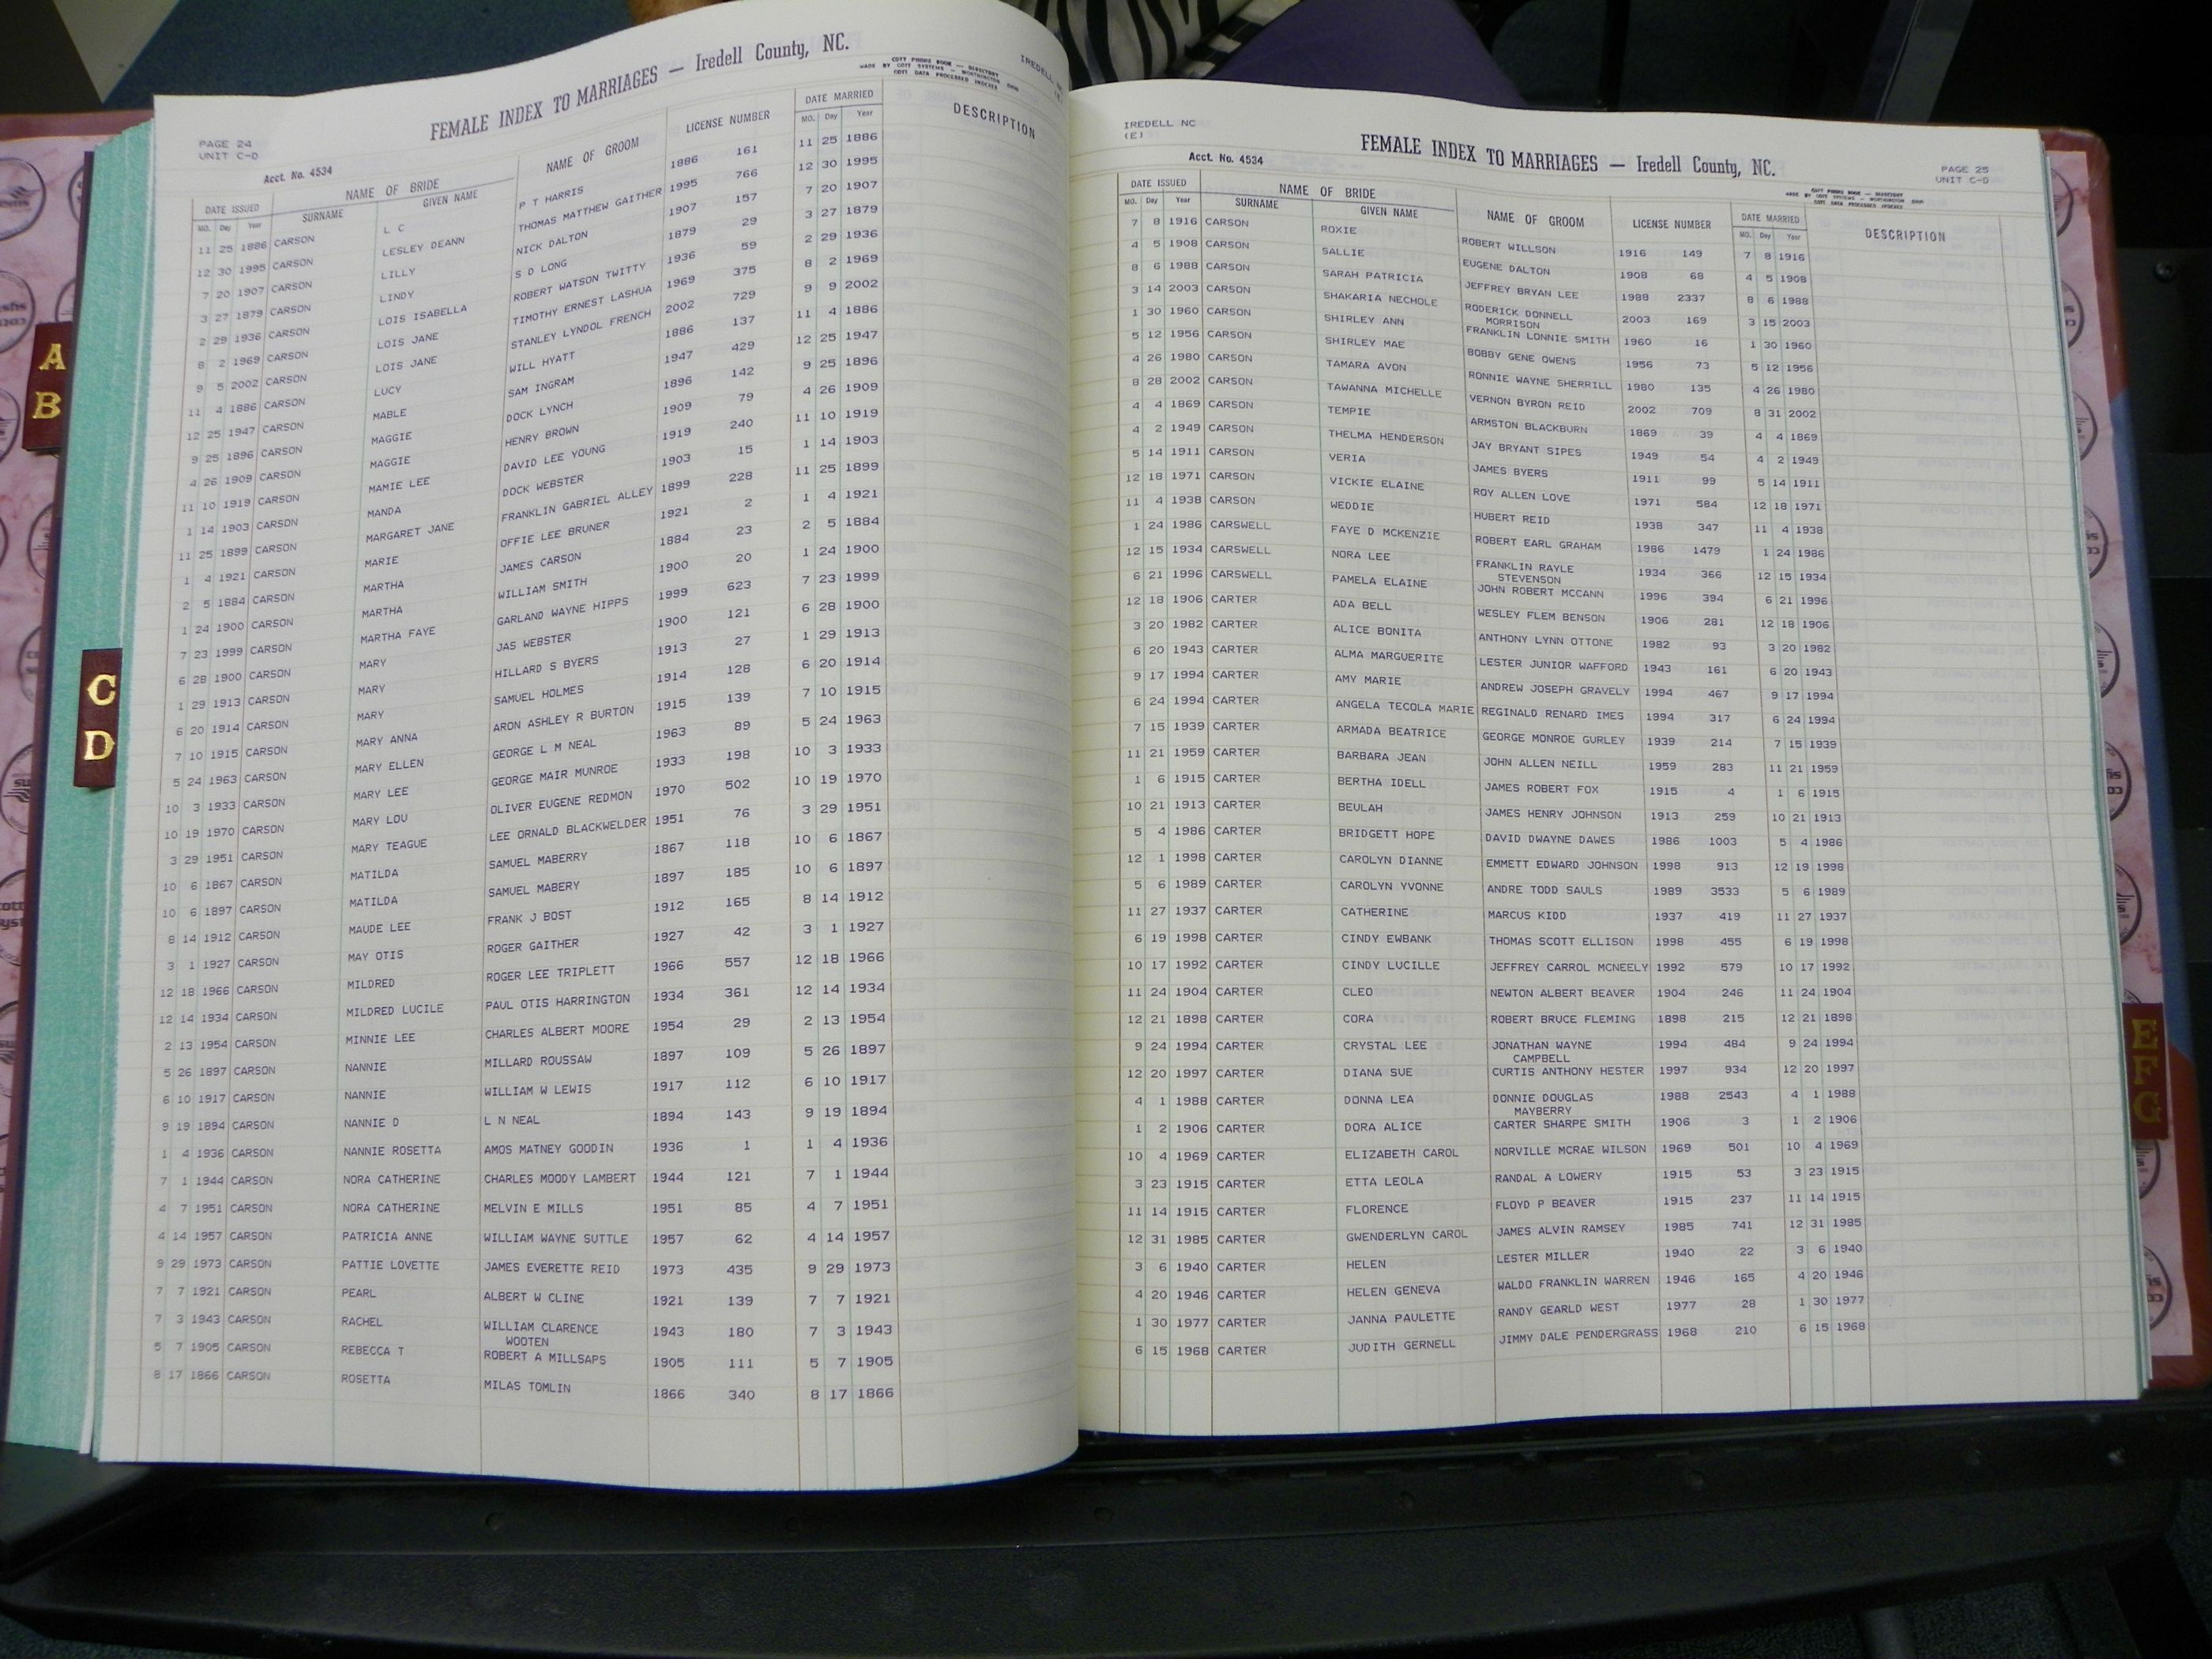 PAGE 24
UNIT C-D
FEMALE INDEX TO MARRIAGES — Iredell County, NC.
COTT PHONE BOOK — DIRECTORY
MADE BY COTT SYSTEMS — WORTHINGTON OHIO
COTT DATA PROCESSED INDEXES
Acct. No. 4534
DATE ISSUED NAME OF BRIDE NAME OF GROOM LICENSE NUMBER DATE MARRIED DESCRIPTION
MO. Day Year SURNAME GIVEN NAME MO. Day Year
11 25 1886 CARSON L C P T HARRIS 1886 161 11 25 1886
12 30 1995 CARSON LESLEY DEANN THOMAS MATTHEW GAITHER 1995 766 12 30 1995
7 20 1907 CARSON LILLY NICK DALTON 1907 157 7 20 1907
3 27 1879 CARSON LINDY S D LONG 1879 29 3 27 1879
2 29 1936 CARSON LOIS ISABELLA ROBERT WATSON TWITTY 1936 59 2 29 1936
8 2 1969 CARSON LOIS JANE TIMOTHY ERNEST LASHUA 1969 375 8 2 1969
9 5 2002 CARSON LOIS JANE STANLEY LYNDOL FRENCH 2002 729 9 9 2002
11 4 1886 CARSON LUCY WILL HYATT 1886 137 11 4 1886
12 25 1947 CARSON MABLE SAM INGRAM 1947 429 12 25 1947
9 25 1896 CARSON MAGGIE DOCK LYNCH 1896 142 9 25 1896
4 26 1909 CARSON MAGGIE HENRY BROWN 1909 79 4 26 1909
11 10 1919 CARSON MAMIE LEE DAVID LEE YOUNG 1919 240 11 10 1919
1 14 1903 CARSON MANDA DOCK WEBSTER 1903 15 1 14 1903
11 25 1899 CARSON MARGARET JANE FRANKLIN GABRIEL ALLEY 1899 228 11 25 1899
1 4 1921 CARSON MARIE OFFIE LEE BRUNER 1921 2 1 4 1921
2 5 1884 CARSON MARTHA JAMES CARSON 1884 23 2 5 1884
1 24 1900 CARSON MARTHA WILLIAM SMITH 1900 20 1 24 1900
7 23 1999 CARSON MARTHA FAYE GARLAND WAYNE HIPPS 1999 623 7 23 1999
6 28 1900 CARSON MARY JAS WEBSTER 1900 121 6 28 1900
1 29 1913 CARSON MARY HILLARD S BYERS 1913 27 1 29 1913
6 20 1914 CARSON MARY SAMUEL HOLMES 1914 128 6 20 1914
7 10 1915 CARSON MARY ANNA ARON ASHLEY R BURTON 1915 139 7 10 1915
5 24 1963 CARSON MARY ELLEN GEORGE L M NEAL 1963 89 5 24 1963
10 3 1933 CARSON MARY LEE GEORGE MAIR MUNROE 1933 198 10 3 1933
10 19 1970 CARSON MARY LOU OLIVER EUGENE REDMON 1970 502 10 19 1970
3 29 1951 CARSON MARY TEAGUE LEE ORNALD BLACKWELDER 1951 76 3 29 1951
10 6 1867 CARSON MATILDA SAMUEL MABERRY 1867 118 10 6 1867
10 6 1897 CARSON MATILDA SAMUEL MABERY 1897 185 10 6 1897
8 14 1912 CARSON MAUDE LEE FRANK J BOST 1912 165 8 14 1912
3 1 1927 CARSON MAY OTIS ROGER GAITHER 1927 42 3 1 1927
12 18 1966 CARSON MILDRED ROGER LEE TRIPLETT 1966 557 12 18 1966
12 14 1934 CARSON MILDRED LUCILE PAUL OTIS HARRINGTON 1934 361 12 14 1934
2 13 1954 CARSON MINNIE LEE CHARLES ALBERT MOORE 1954 29 2 13 1954
5 26 1897 CARSON NANNIE MILLARD ROUSSAW 1897 109 5 26 1897
6 10 1917 CARSON NANNIE WILLIAM W LEWIS 1917 112 6 10 1917
9 19 1894 CARSON NANNIE D L N NEAL 1894 143 9 19 1894
1 4 1936 CARSON NANNIE ROSETTA AMOS MATNEY GOODIN 1936 1 1 4 1936
7 1 1944 CARSON NORA CATHERINE CHARLES MOODY LAMBERT 1944 121 7 1 1944
4 7 1951 CARSON NORA CATHERINE MELVIN E MILLS 1951 85 4 7 1951
4 14 1957 CARSON PATRICIA ANNE WILLIAM WAYNE SUTTLE 1957 62 4 14 1957
9 29 1973 CARSON PATTIE LOVETTE JAMES EVERETTE REID 1973 435 9 29 1973
7 7 1921 CARSON PEARL ALBERT W CLINE 1921 139 7 7 1921
7 3 1943 CARSON RACHEL WILLIAM CLARENCE 1943 180 7 3 1943
WOOTEN
5 7 1905 CARSON REBECCA T ROBERT A MILLSAPS 1905 111 5 7 1905
8 17 1866 CARSON ROSETTA MILAS TOMLIN 1866 340 8 17 1866
IREDELL NC
(E)
FEMALE INDEX TO MARRIAGES — Iredell County, NC.
PAGE 25
UNIT C-D
Acct. No. 4534
COTT PHONE BOOK — DIRECTORY
MADE BY COTT SYSTEMS — WORTHINGTON OHIO
COTT DATA PROCESSED INDEXES
DATE ISSUED NAME OF BRIDE NAME OF GROOM LICENSE NUMBER DATE MARRIED DESCRIPTION
MO. Day Year SURNAME GIVEN NAME MO. Day Year
7 8 1916 CARSON ROXIE ROBERT WILLSON 1916 149 7 8 1916
4 5 1908 CARSON SALLIE EUGENE DALTON 1908 68 4 5 1908
8 6 1988 CARSON SARAH PATRICIA JEFFREY BRYAN LEE 1988 2337 8 6 1988
3 14 2003 CARSON SHAKARIA NECHOLE RODERICK DONNELL 2003 169 3 15 2003
MORRISON
1 30 1960 CARSON SHIRLEY ANN FRANKLIN LONNIE SMITH 1960 16 1 30 1960
5 12 1956 CARSON SHIRLEY MAE BOBBY GENE OWENS 1956 73 5 12 1956
4 26 1980 CARSON TAMARA AVON RONNIE WAYNE SHERRILL 1980 135 4 26 1980
8 28 2002 CARSON TAWANNA MICHELLE VERNON BYRON REID 2002 709 8 31 2002
4 4 1869 CARSON TEMPIE ARMSTON BLACKBURN 1869 39 4 4 1869
4 2 1949 CARSON THELMA HENDERSON JAY BRYANT SIPES 1949 54 4 2 1949
5 14 1911 CARSON VERIA JAMES BYERS 1911 99 5 14 1911
12 18 1971 CARSON VICKIE ELAINE ROY ALLEN LOVE 1971 584 12 18 1971
11 4 1938 CARSON WEDDIE HUBERT REID 1938 347 11 4 1938
1 24 1986 CARSWELL FAYE D MCKENZIE ROBERT EARL GRAHAM 1986 1479 1 24 1986
12 15 1934 CARSWELL NORA LEE FRANKLIN RAYLE 1934 366 12 15 1934
STEVENSON
6 21 1996 CARSWELL PAMELA ELAINE JOHN ROBERT MCCANN 1996 394 6 21 1996
12 18 1906 CARTER ADA BELL WESLEY FLEM BENSON 1906 281 12 18 1906
3 20 1982 CARTER ALICE BONITA ANTHONY LYNN OTTONE 1982 93 3 20 1982
6 20 1943 CARTER ALMA MARGUERITE LESTER JUNIOR WAFFORD 1943 161 6 20 1943
9 17 1994 CARTER AMY MARIE ANDREW JOSEPH GRAVELY 1994 467 9 17 1994
6 24 1994 CARTER ANGELA TECOLA MARIE REGINALD RENARD IMES 1994 317 6 24 1994
7 15 1939 CARTER ARMADA BEATRICE GEORGE MONROE GURLEY 1939 214 7 15 1939
11 21 1959 CARTER BARBARA JEAN JOHN ALLEN NEILL 1959 283 11 21 1959
1 6 1915 CARTER BERTHA IDELL JAMES ROBERT FOX 1915 4 1 6 1915
10 21 1913 CARTER BEULAH JAMES HENRY JOHNSON 1913 259 10 21 1913
5 4 1986 CARTER BRIDGETT HOPE DAVID DWAYNE DAWES 1986 1003 5 4 1986
12 1 1998 CARTER CAROLYN DIANNE EMMETT EDWARD JOHNSON 1998 913 12 19 1998
5 6 1989 CARTER CAROLYN YVONNE ANDRE TODD SAULS 1989 3533 5 6 1989
11 27 1937 CARTER CATHERINE MARCUS KIDD 1937 419 11 27 1937
6 19 1998 CARTER CINDY EWBANK THOMAS SCOTT ELLISON 1998 455 6 19 1998
10 17 1992 CARTER CINDY LUCILLE JEFFREY CARROL MCNEELY 1992 579 10 17 1992
11 24 1904 CARTER CLEO NEWTON ALBERT BEAVER 1904 246 11 24 1904
12 21 1898 CARTER CORA ROBERT BRUCE FLEMING 1898 215 12 21 1898
9 24 1994 CARTER CRYSTAL LEE JONATHAN WAYNE 1994 484 9 24 1994
CAMPBELL
12 20 1997 CARTER DIANA SUE CURTIS ANTHONY HESTER 1997 934 12 20 1997
4 1 1988 CARTER DONNA LEA DONNIE DOUGLAS 1988 2543 4 1 1988
MAYBERRY
1 2 1906 CARTER DORA ALICE CARTER SHARPE SMITH 1906 3 1 2 1906
10 4 1969 CARTER ELIZABETH CAROL NORVILLE MCRAE WILSON 1969 501 10 4 1969
3 23 1915 CARTER ETTA LEOLA RANDAL A LOWERY 1915 53 3 23 1915
11 14 1915 CARTER FLORENCE FLOYD P BEAVER 1915 237 11 14 1915
12 31 1985 CARTER GWENDERLYN CAROL JAMES ALVIN RAMSEY 1985 741 12 31 1985
3 6 1940 CARTER HELEN LESTER MILLER 1940 22 3 6 1940
4 20 1946 CARTER HELEN GENEVA WALDO FRANKLIN WARREN 1946 165 4 20 1946
1 30 1977 CARTER JANNA PAULETTE RANDY GEARLD WEST 1977 28 1 30 1977
6 15 1968 CARTER JUDITH GERNELL JIMMY DALE PENDERGRASS 1968 210 6 15 1968
A
B
C
D
E
F
G